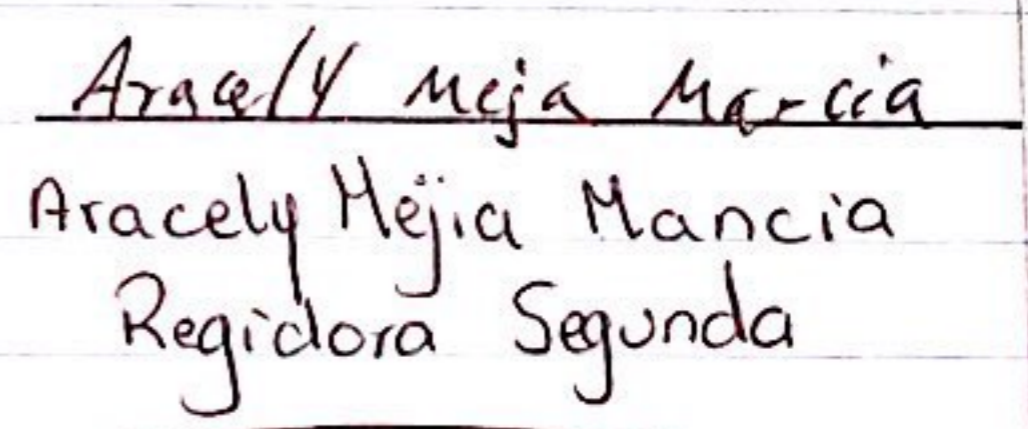 Aracely Meja Marcia
Aracely Mejia Mancia
Regidora Segunda